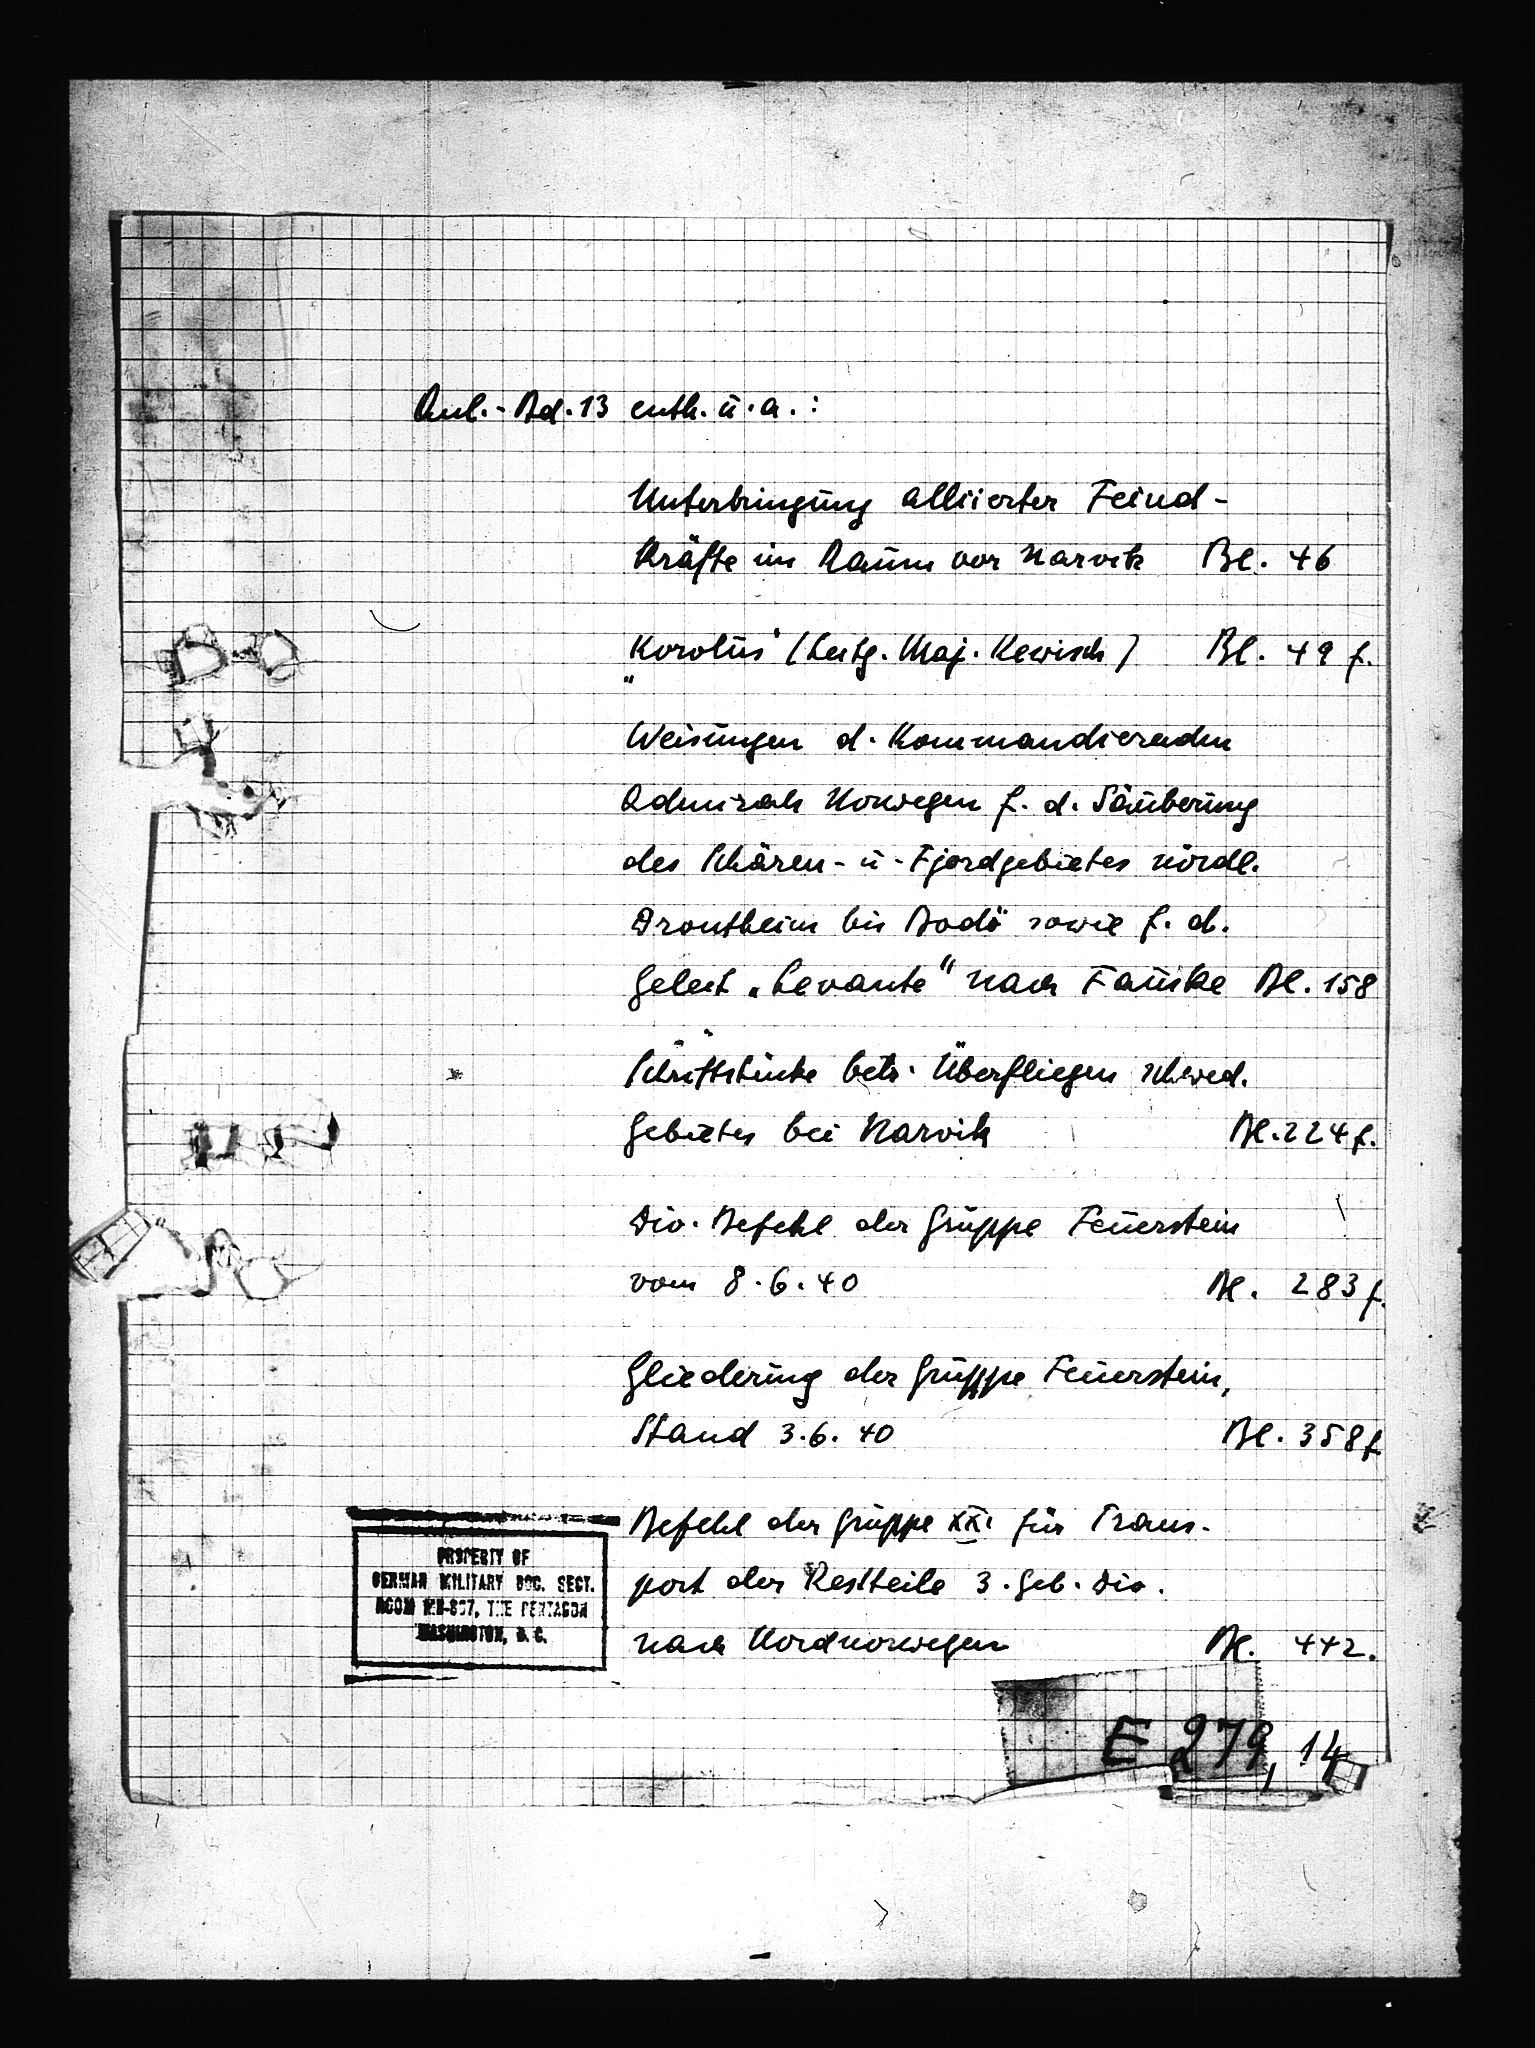 Anl.-Bd. 13 enth. u. a.:
Unterbringung alliierter Feind-
kräfte im Raum vor Narvik Bl. 46
"Korolus" (Lustg. Maj. Kewisch) Bl. 49 f.
Weisungen d. Kommandierenden
Admirals Norwegen f. d. Säuberung
des Schären- u- Fjordgebietes nördl.
Drontheim bis Bodö sowie f. d.
Geleit „Levante" nach Fauske Bl. 158
Schriftstücke betr. Überfliegen schwed.
Gebietes bei Narvik Bl. 224 f.
Div. Befehl der Gruppe Feuerstein
vom 8.6.40 Bl. 283 f.
Gliederung der Gruppe Feuerstein,
Stand 3.6.40 Bl. 358 f.
Befehl der Gruppe XXI für Trans-
port der Restteile 3. Geb. Div.
nach Nordnorwegen Bl. 442.
PROPERTY OF
GERMAN MILITARY DOC. SECT.
ROOM THE PENTAGON
WASHINGTON, D. C.
E 279, 14